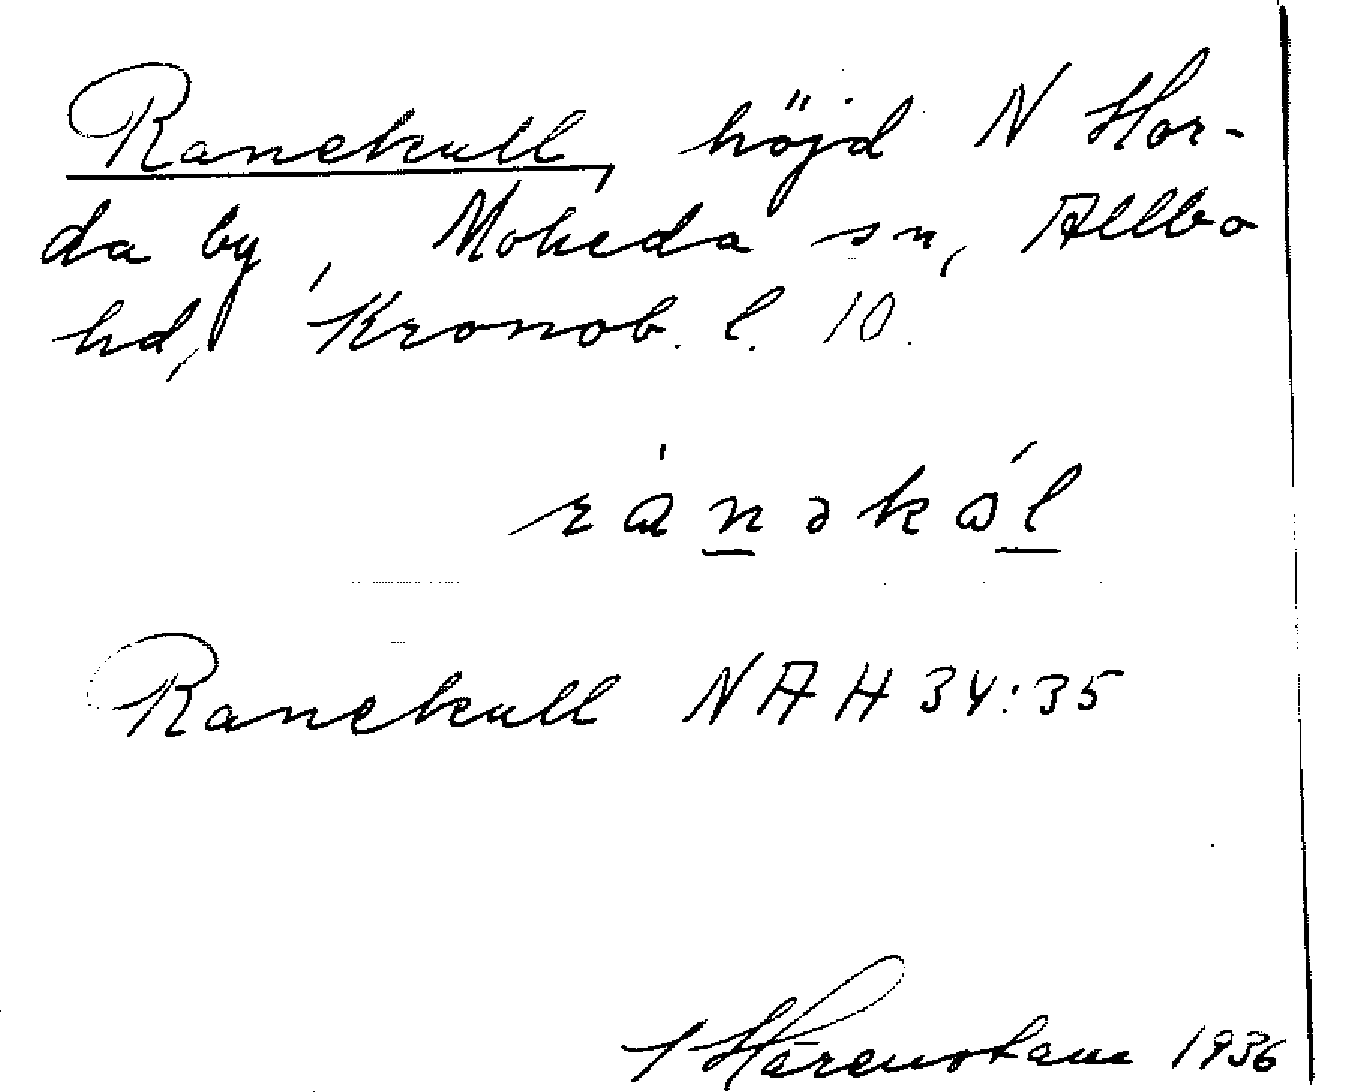 Ranekull, höjd N Hor-
da by, Moheda sn, Allbo
hd, Kronob. l. 10.
rànəkól
Ranekull NAH 34:35
Hårenstam 1936